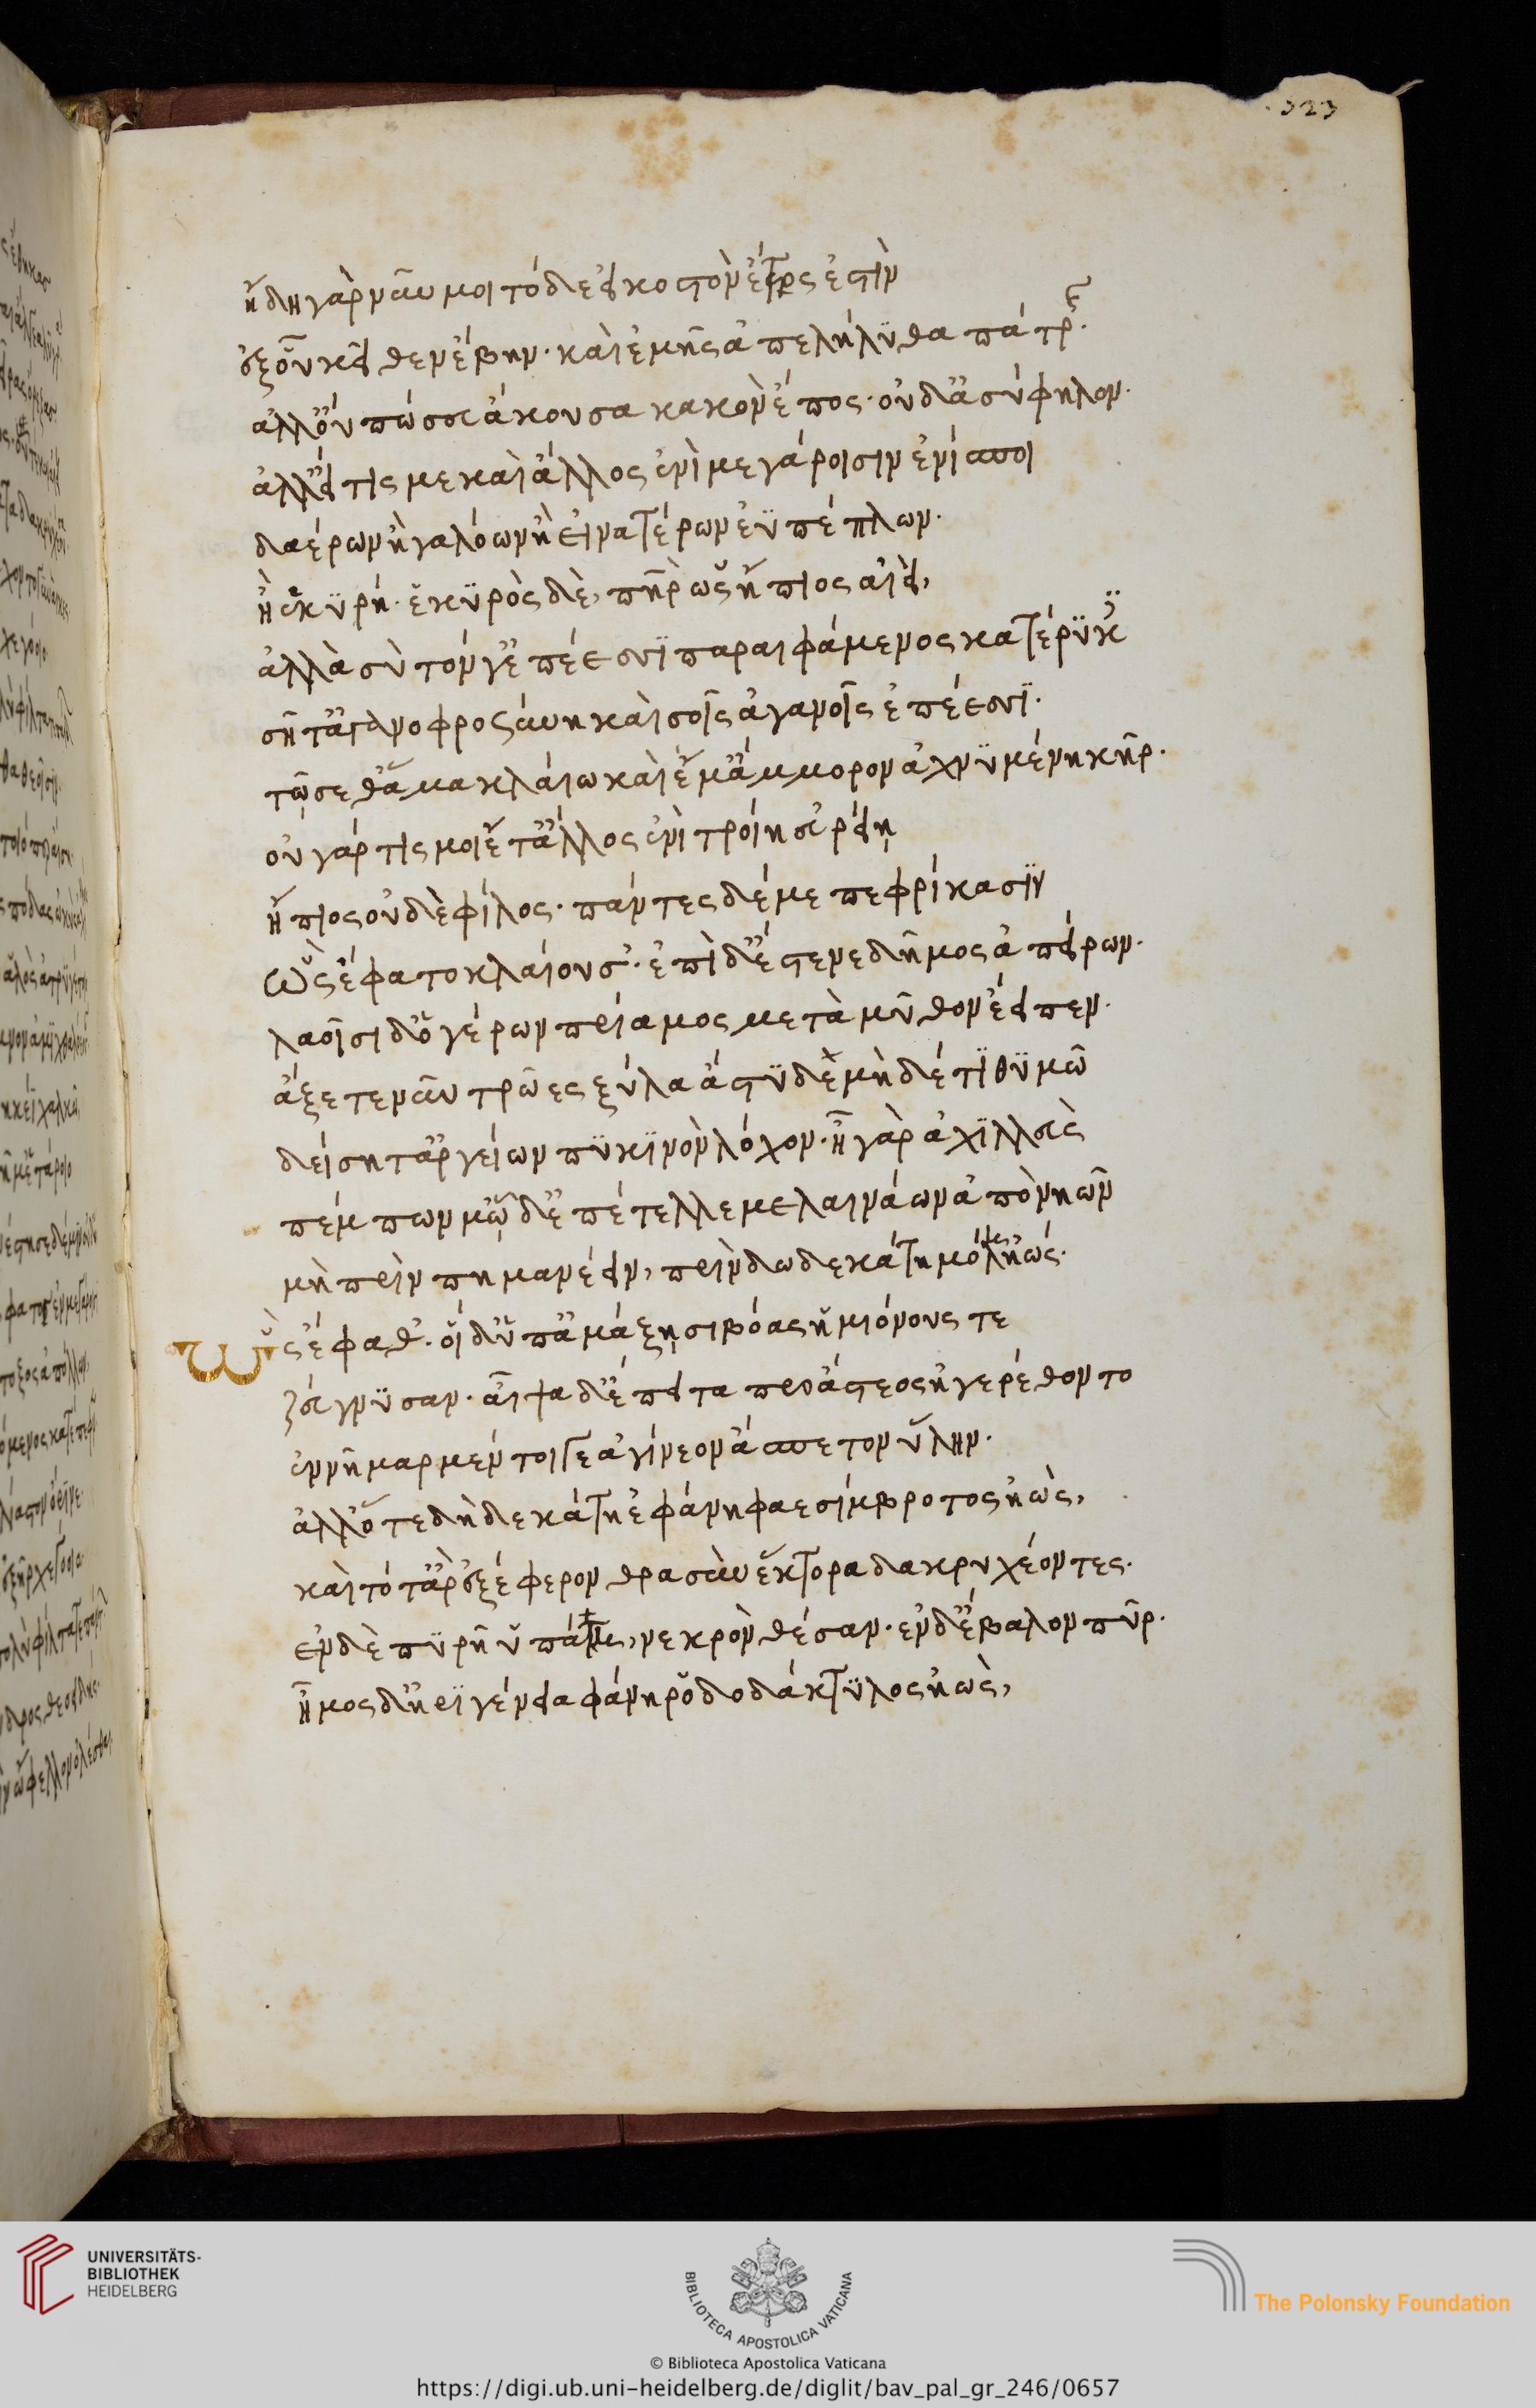 323
ἤδη γὰρ νῦν μοι τόδ' εἰκοστὸν ἔτος ἐστὶν
ἐξ οὗ κεῖθεν ἔβην· καὶ ἐμῆς ἀπελήλυθα πάτρης·
ἀλλ' οὔπω σεῦ ἄκουσα κακὸν ἔπος· οὐδ' ἀσύφηλον·
ἀλλ' εἴ τις με καὶ ἄλλος ἐνὶ μεγάροισιν ἐνίπτοι
δαέρων ἢ γαλόων ἢ εἰνατέρων ἐϋπέπλων·
ἢ ἑκϋρή· ἑκϋρὸς δὲ, πατὴρ ὣς ἤπιος αἰεί,
ἀλλὰ σὺ τόν γ' ἐπέεσσϊ παραιφάμενος κατέρϋκες
σῇ τ' ἀγανοφροσύνῃ καὶ σοῖς ἀγανοῖς ἐπέεσσϊ·
τῷ σέ θ' ἅμα κλαίω καὶ ἔμ' ἄμμορον ἀχνϋμένη κῆρ·
οὐ γάρ τίς μοι ἔτ' ἄλλος ἐνὶ τροίῃ εὐρείῃ
ἤπιος οὐδὲ φίλος· πάντες δέ με πεφρίκασϊν
ὣς ἔφατο κλαίουσ'· ἐπὶ δ' ἔστενε δῆμος ἀπείρων·
λαοῖσι δ' ὁ γέρων πρίαμος μετὰ μῦθον ἔειπεν·
ἄξετε νῦν τρῶες ξύλα ἄστϋδε μὴ δέ τϊ θϋμῶ
δείσητ' ἀργείων πϋκϊνὸν λόχον· ἦ γὰρ ἀχϊλλεὺς
πέμπων μ' ὧδ' ἐπέτελλε μελαινάων ἀπὸ νηῶν
μὴ πρὶν πημανέειν, πρὶν δωδεκάτη μόλῃ ἠώς·
ὣς ἔφαθ'· οἱ δ' ὑπ' ἀμάξῃσι βόας ἡμιόνους τε
ζεύγνϋσαν· αἶψα δ' ἔπειτα πρὸ ἄστεος ἠγερέθοντο
ἐννῆμαρ μὲν τοί γε ἀγίνεον ἄσπετον ὕλην·
ἀλλ' ὅτε δὴ δεκάτη ἐφάνη φαεσίμβροτος ἠὼς,
καὶ τότ' ἂρ ἐξέφερον θρασὺν ἕκτορα δακρυχέοντες·
ἐν δὲ πϋρῇ ὑπάτῃ, νεκρὸν θέσαν· ἐν δ' ἔβαλον πῦρ·
ἦμος δ' ἠριγένεια φάνη ῥοδοδάκτϋλος ἠὼς,
UNIVERSITÄTS-
BIBLIOTHEK
HEIDELBERG
BIBLIOTECA APOSTOLICA VATICANA
The Polonsky Foundation
© Biblioteca Apostolica Vaticana
https://digi.ub.uni-heidelberg.de/diglit/bav_pal_gr_246/0657